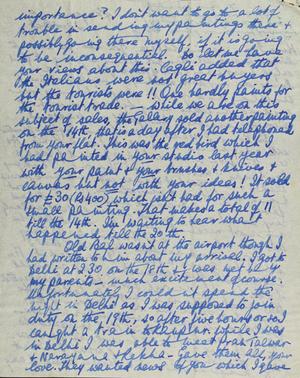 importance? I don't want to go to a lot of
trouble in sending my paintings there &
possibly going there myself, if it is going
to be inconsequential. So let me have
your views about this. Cagli added that
the Italians were not great buyers
but the tourists were!! One hardly paints for
the tourist trade. — While we are on this
subject of sales, the Gallery sold another painting
on the 14th, that is a day after I had telephoned
from your flat. This was the red bird which I
had painted in your studio last year
with your paint & your brushes & knives &
canvas but not with your ideas! It sold
for £30 (Rs400) which isn't bad for such a
small painting. That makes a total of 11
till the 14th. I'm waiting to hear what
happened till the 20th.
Old Bal wasn't at the airport though I
had written to him about my arrival. I got to
Delhi at 2.30 on the 18th & was met by
my parents – much excitement of course.
Unfortunately I could not spend the
night in Delhi as I was supposed to join
duty on the 19th, so after five hours or so I
caught a train to . While I was
in Delhi I was able to meet Pran Talwar
& Narayana & Rekha – gave them all your
love. They wanted news of you which I gave